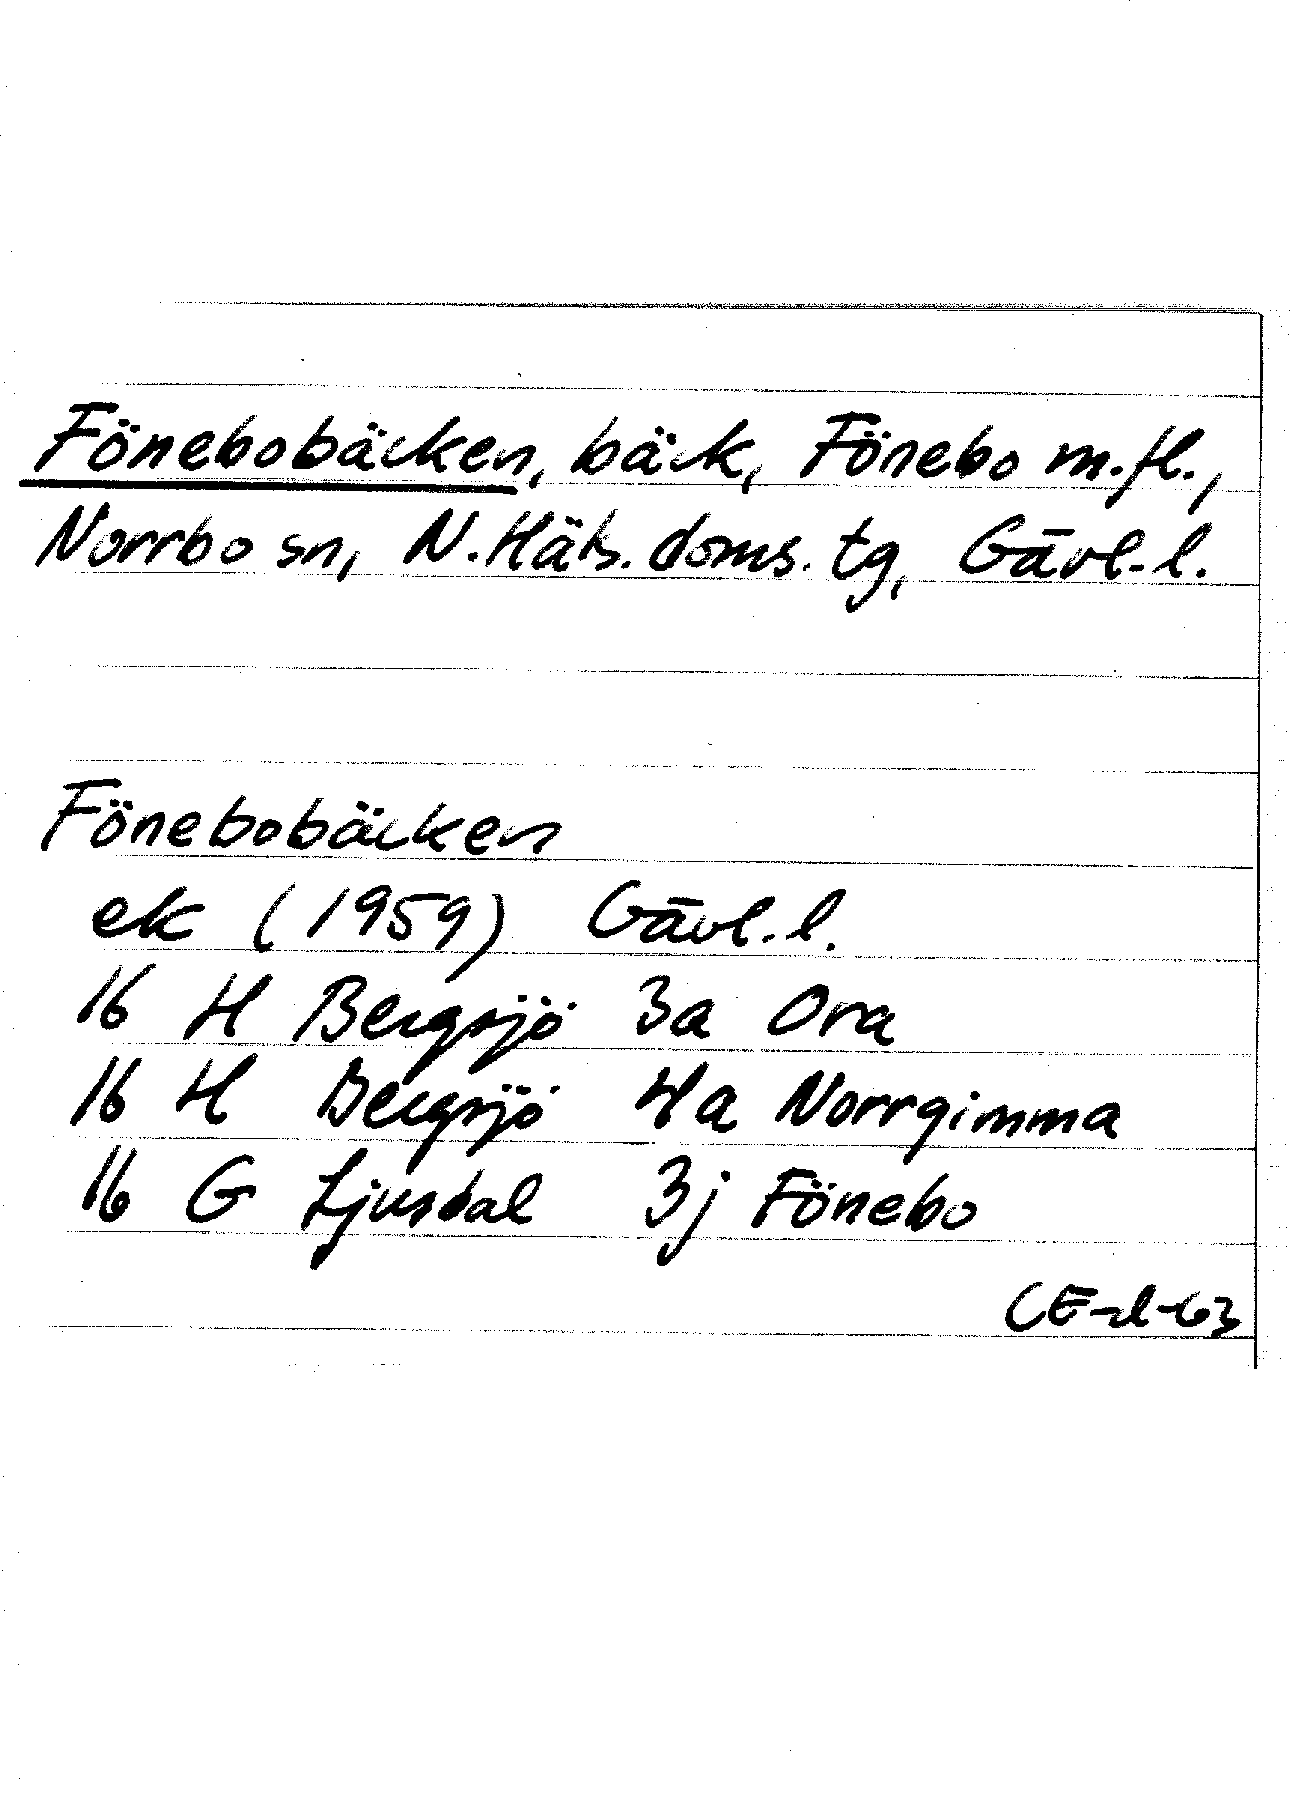 Fönebobäcken, bäck, Fönebo m.fl.,
Norrbo sn, N.Häls.doms.tg, Gävl.l.
Fönebobäcken
ek (1959) Gävl.l.
16 H Bergsjö 3a Ora
16 H Bergsjö 4a Norrgimma
16 G Ljusdal 3j Fönebo
CE-d-63